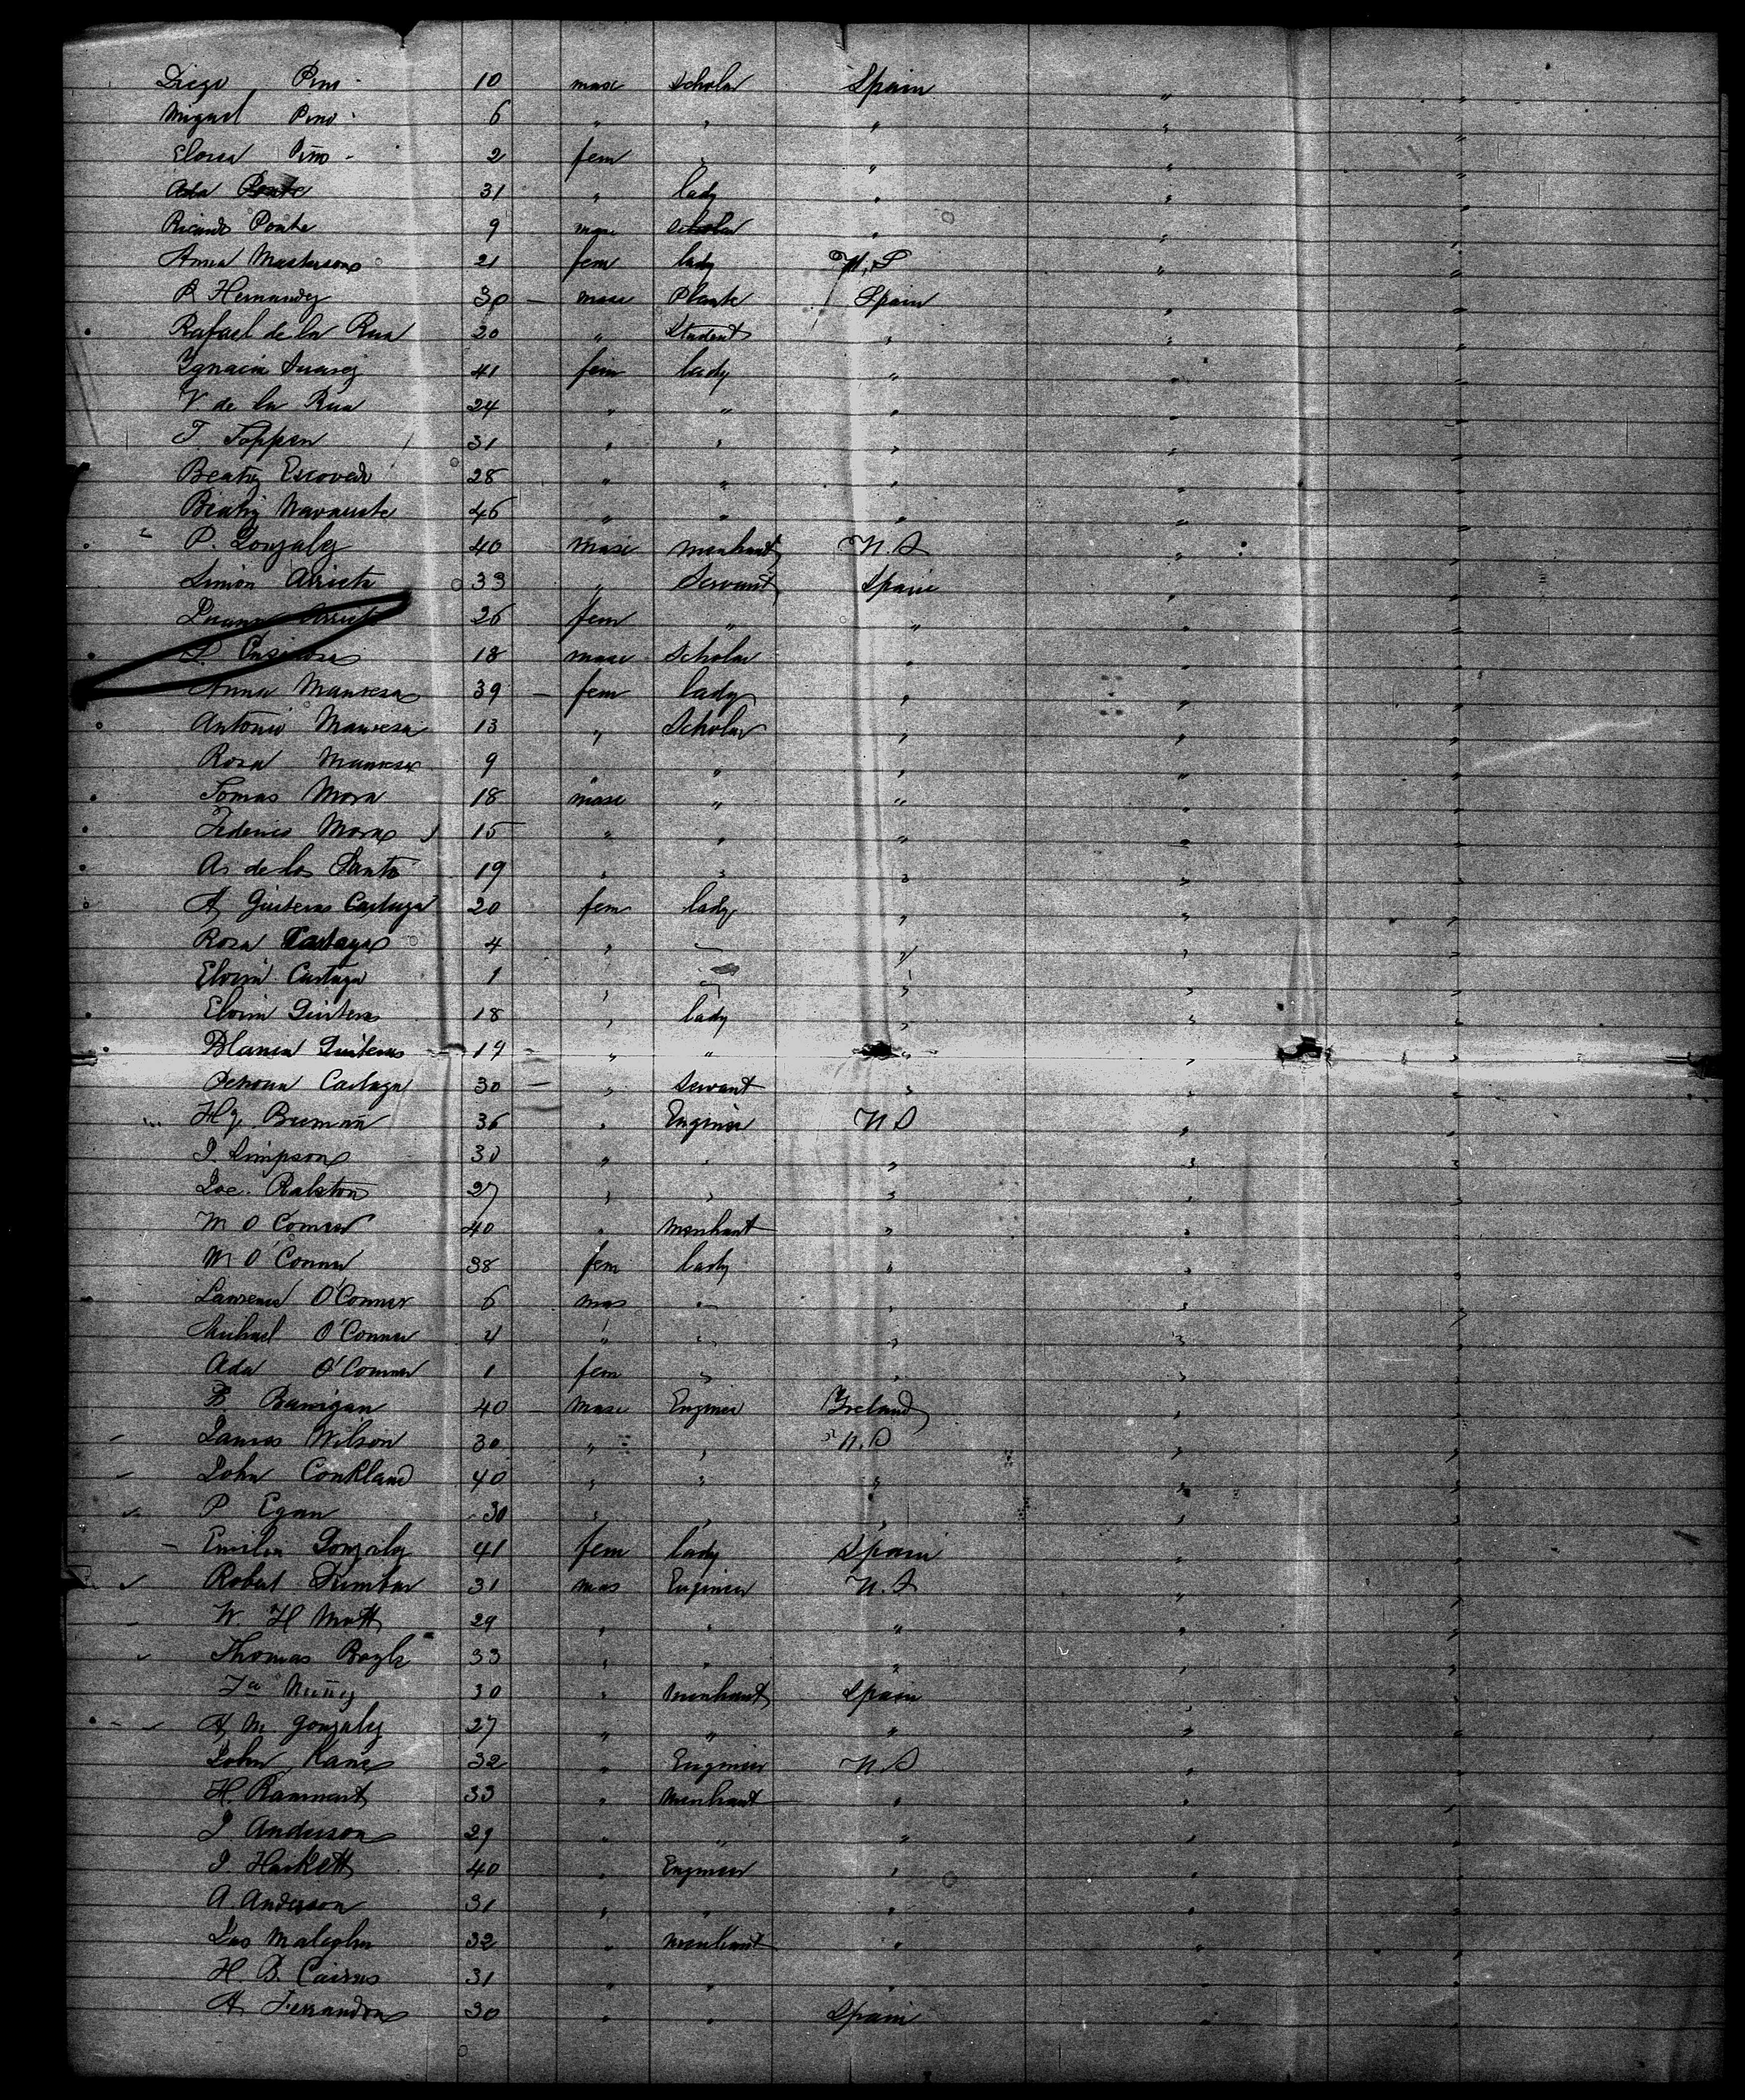 Diego Pino 10 masc Scholar Spain " "
Miguel Pino 6 " " " " "
Eloisa Pino 2 fem " " " "
Ada Ponte 31 " lady " " "
Ricardo Ponte 9 masc Scholar " " "
Anna Mastersons 21 fem lady U.S " "
R Hernandez 30 masc Plante Spain " "
Rafael de la Rua 20 " Student " " "
Ygnacia Suarez 41 fem lady " " "
V. de la Rua 24 " " " " "
T. Toppen 31 " " " " "
Beatriz Escovedo 28 " " " " "
Beatriz 46 " " " " "
P. Gonzalez 40 masc merchant U.S " "
Simon Arrieta 33 " Servant Spain " "
Juana Arrieta 26 fem " " " "
18 masc Scholar " " "
Anna Manresa 39 fem lady " " "
Antonio Manresa 13 " Scholar " " "
Rosa Manresa 9 " " " " "
Tomas Mora 18 masc " " " "
Federico Mora 15 " " " " "
As de los Santos 19 " " " " "
A Guiteras Cartaya 20 fem lady " " "
Rosa Cartaya 4 " " " "
Eloisa Cartaya 1 " " " "
Eloisa Guiteras 18 " lady " " "
Blanca Guiteras 14 " " " " "
Cartaya 30 " Servant " " "
Hy. 36 " Engineer U.S " "
J. Simpson 30 " " " " "
Joe. Ralston 27 " " " " "
M O Connor 40 " merchant " " "
M O'Connor 38 fem lady " " "
Lawrence O'Connor 6 mas " " " "
Michael O'Connor 4 " " " " "
Ada O'Connor 1 fem " " " "
B Banigan 40 masc Engineer Ireland " "
James Wilson 30 " " U.S " "
John Conkland 40 " " " " "
P Egan 30 " " " " "
Emilia Gonzalez 41 fem lady Spain " "
Robert Dumbar 31 mas Engineer U.S " "
W H Mott 29 " " " " "
Thomas Bogle 33 " " " " "
Fco Nuñez 30 " merchant Spain " "
A M Gonzalez 27 " " " " "
John Kane 32 " Engineer U.S " "
H. 33 " merchant " " "
J. Anderson 29 " " " " "
J Hackett 40 " Engineer " " "
A. Anderson 31 " " " " "
Jas 32 " merchant " " "
H. B. Cairns 31 " " " " "
A Ferrandon 30 " " Spain " "